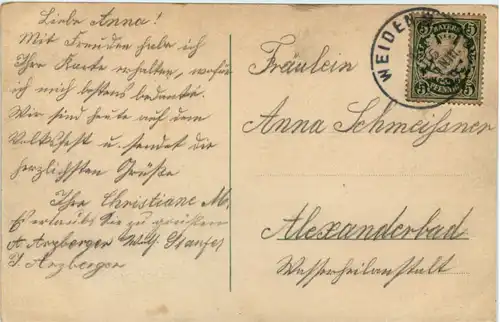 Liebe Anna!
Mit Freuden habe ich
Ihre Karte erhalten, wofür
ich mich bestens bedanke.
Wir sind heute auf dem
Volksfest u. sendet die
herzlichsten Grüße
Ihre Christiane M.
Es erlaubt Sie zu grüssen
A. Arzberger Wolf
J. Arzberger
WEIDEN
BAYERN
5 5
PFENNIG
Fräulein
Anna Schmeissner
Alexanderbad
Wasserheilanstalt